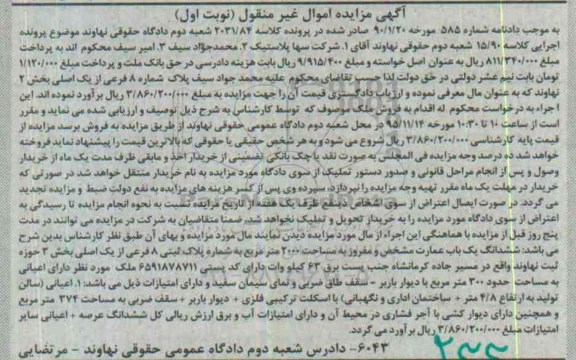 آگهی مزایده اموال غیر منقول (نوبت اول)
به موجب دادنامه شماره ۵۸۵ مورخه ۹۰/۱/۲۰ صادر شده در پرونده کلاسه ۲۰۳۱/۸۴ شعبه دوم دادگاه حقوقی نهاوند موضوع پرونده
اجرایی کلاسه ۱۵/۹۰ شعبه دوم حقوقی نهاوند آقای ۱. شرکت سها پلاستیک ۲. محمدجواد سیف ۳. امیر سیف محکوم اند به پرداخت
مبلغ ۸۱۱/۳۴۰/۰۰۰ ریال به عنوان اصل خواسته و مبلغ ۹/۹۱۵/۴۰۰ ریال بابت هزینه دادرسی در حق بانک ملت و پرداخت مبلغ ۱/۱۲۰/۰۰۰
تومان بابت نیم عشر دولتی در حق دولت لذا حسب تقاضای محکوم علیه محمد جواد سیف پلاک شماره ۸ فرعی از یک اصلی بخش ۲
نهاوند که به عنوان مال معرفی نموده و ارزیاب دادگستری قیمت آن را جهت مزایده به مبلغ ۳/۸۶۰/۲۰۰/۰۰۰ ریال برآورد نموده اند. این
اجراء به درخواست محکوم له اقدام به فروش ملک موصوف که توسط کارشناس به شرح ذیل توصیف و ارزیابی شده می نماید و مقرر
است از ساعت ۱۰ تا ۱۰:۳۰ مورخه ۹۵/۱۱/۱۴ در محل شعبه دوم دادگاه عمومی حقوقی نهاوند از طریق مزایده به فروش برسد مزایده از
قیمت پایه کارشناسی ۳/۸۶۰/۲۰۰/۰۰۰ ریال شروع می شود و به هر شخص حقیقی یا حقوقی که بالاترین قیمت را پیشنهاد نماید فروخته
خواهد شد ده درصد وجه مزایده فی المجلس به صورت نقد یا چک بانکی تضمینی از خریدار اخذ و مابقی ظرف مدت یک ماه از خریدار
وصول و پس از انجام مراحل قانونی و صدور دستور تملیک از سوی دادگاه مورد مزایده به نام خریدار منتقل خواهد شد در صورتی که
خریدار در مهلت یک ماه مقرر تهیه وجه مزایده را نپردازد، سپرده وی پس از کسر هزینه های مزایده به نفع دولت ضبط و مزایده تجدید
می گردد. در صورت ایصال اعتراض از سوی اشخاص ذینفع ظرف یک هفته از تاریخ مزایده نسبت به نحوه انجام مزایده تا رسیدگی به
اعتراض از سوی دادگاه مورد مزایده را به خریدار تحویل و تملیک نخواهد شد، ضمنا متقاضیان به شرکت در مزایده می توانند در مدت
پنج روز قبل از مزایده با هماهنگی این اجراء از مال مورد مزایده دیدن نمایند مال مورد مزایده و بهای آن طبق نظر کارشناس بدین شرح
می باشد: ششدانگ یک باب عمارت مشخص و مفروز به مساحت ۲۰۰۰ متر مربع به شماره پلاک ثبتی ۸ فرعی از یک اصلی بخش ۳ حوزه
ثبت نهاوند واقع در مسیر جاده کرمانشاه جنب پست برق ۶۳ کیلو وات دارای کد پستی ۶۵۹۱۸۷۸۷۱۱ ملک مورد نظر دارای اعیانی
به مساحت حدود ۳۰۰ متر مربع با دیوار باربر - سقف طاق ضربی و نمای سیمان سفید و دارای امتیازات ذیل می باشد: ۱. اعیانی (سالن
تولید به ارتفاع ۴/۸ متر + ساختمان اداری و نگهبانی) با اسکلت ترکیبی فلزی + دیوار باربر + سقف ضربی به مساحت ۳۷۴ متر مربع
و همچنین دارای دیوار کشی با آجر فشاری در محیط آن و دارای امتیازات آب و برق ارزش ریالی کل ششدانگ عرصه + اعیانی سایر
امتیازات مبلغ ۳/۸۶۰/۲۰۰/۰۰۰ ریال برآورد می گردد.
۶۰۴۳- دادرس شعبه دوم دادگاه عمومی حقوقی نهاوند - مرتضایی